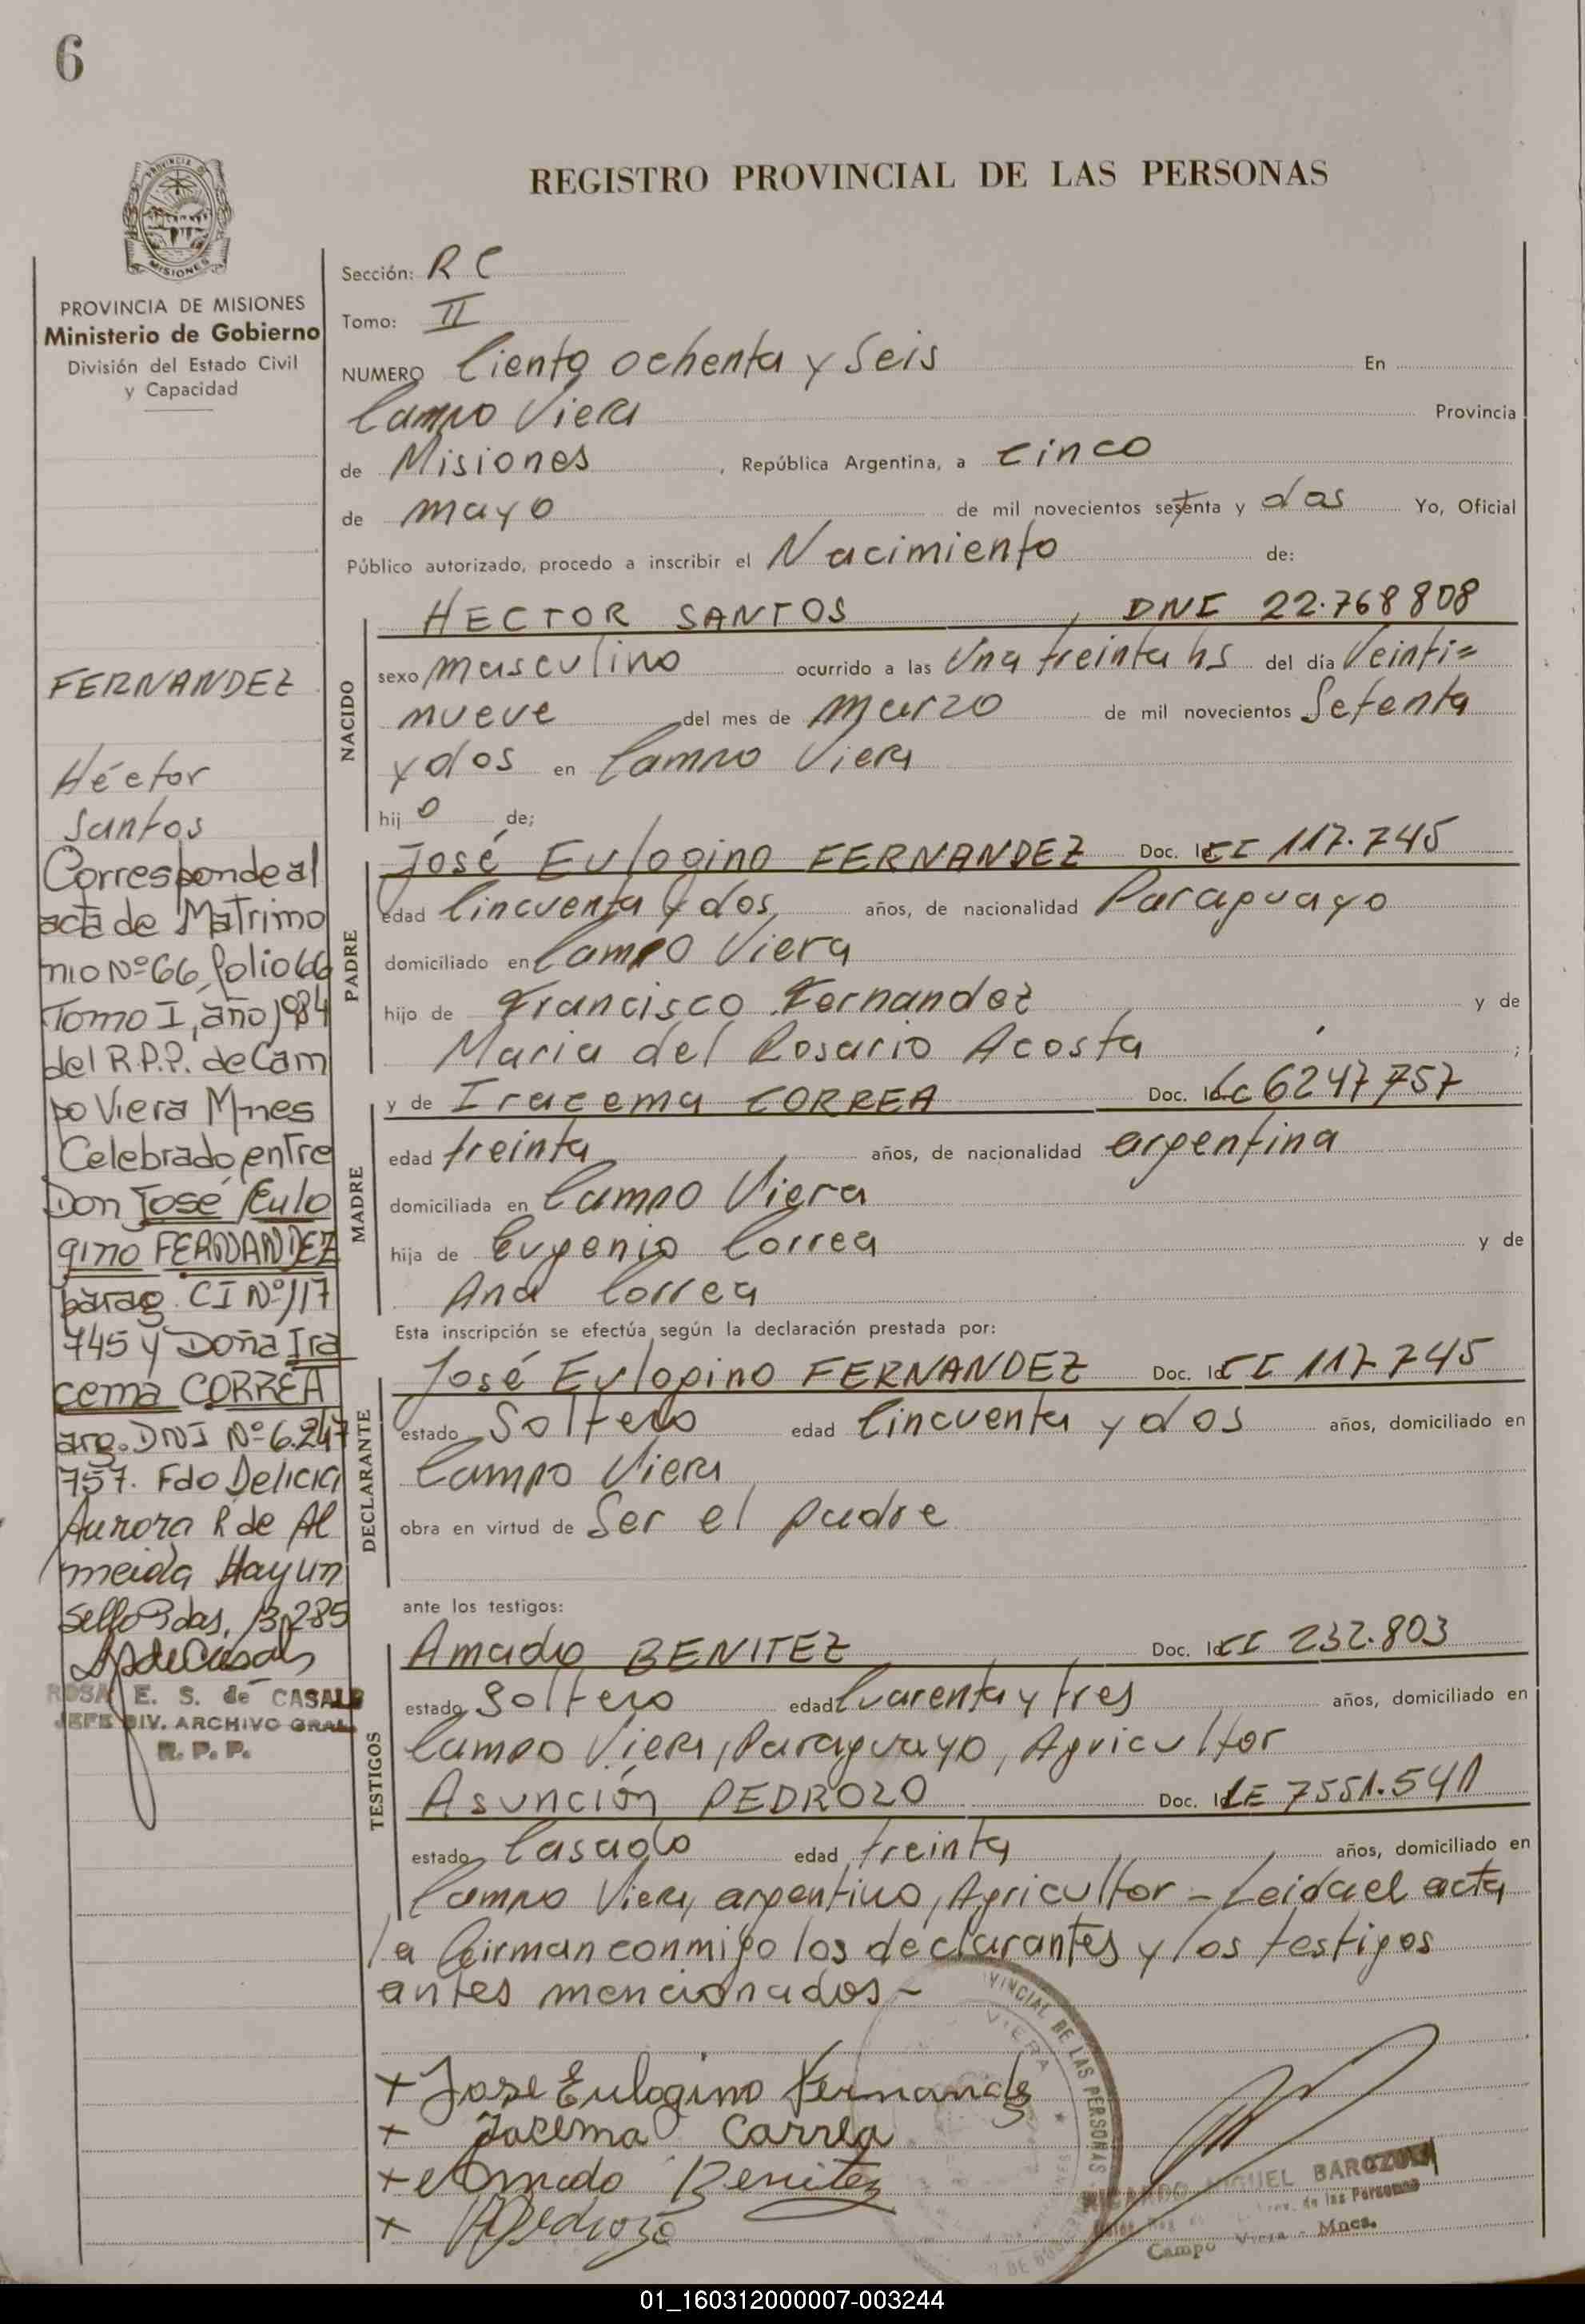 6
REGISTRO PROVINCIAL DE LAS PERSONAS
PROVINCIA DE MISIONES
Ministerio de Gobierno
División del Estado Civil
y Capacidad
FERNANDEZ
Héctor
Santos
Corresponde al
acta de Matrimo
nio Nº 66, folio 66
Tomo I, año 1984
del R.P.P. de Cam
po Viera Mnes
Celebrado entre
Don José Eulo
gino FERNANDEZ
parag. CI Nº 117
745 y Doña Ira
cema CORREA
arg. DNI Nº 6.247
757. Fdo Delicia
Aurora R de Al
meida Hay un
Sello Pdas, 13,2,85
ROSA E. S. de CASALS
JEFE DIV. ARCHIVO GRAL.
R. P. P.
Sección: R C
Tomo: II
NUMERO Ciento ochenta y Seis En
Campo Viera Provincia
de Misiones , República Argentina, a cinco
de mayo de mil novecientos setenta y dos Yo, Oficial
Público autorizado, procedo a inscribir el Nacimiento de:
NACIDO
HECTOR SANTOS , DNI 22.768808
sexo masculino ocurrido a las Una treinta hs del día Veinti=
nueve del mes de marzo de mil novecientos Setenta
y dos en Campo Viera
hij o de;
PADRE
José Eulogino FERNANDEZ Doc. Id. CI 117.745
edad Cincuenta y dos, años, de nacionalidad Paraguayo
domiciliado en Campo Viera
hijo de Francisco Fernandez y de
Maria del Rosario Acosta ;
MADRE
y de Iracema CORREA Doc. Id. LC 6247757
edad treinta años, de nacionalidad argentina
domiciliada en Campo Viera
hija de Eugenio Correa y de
Ana Correa
Esta inscripción se efectúa según la declaración prestada por:
DECLARANTE
José Eulogino FERNANDEZ Doc. Id. CI 117745
estado Soltero edad Cincuenta y dos años, domiciliado en
Campo Viera
obra en virtud de Ser el padre
ante los testigos:
TESTIGOS
Amado BENITEZ Doc. Id. CI 232.803
estado Soltero edad Cuarenta y tres años, domiciliado en
Campo Viera, Paraguayo, Agricultor
Asunción PEDROZO Doc. Id. LE 7551.541
estado Casado edad treinta años, domiciliado en
Campo Viera, argentino, Agricultor - Leida el acta
la firman conmigo los declarantes y los testigos
antes mencionados -
+ Jose Eulogino Fernandez
+ Iracema Correa
+ Amado Benitez
+ APedrozo
VINCIAL DE LAS PERSONAS
VIERA
RICARDO MIGUEL BAROZOLA
de las Personas
Campo Viera - Mnes.
01_160312000007-003244